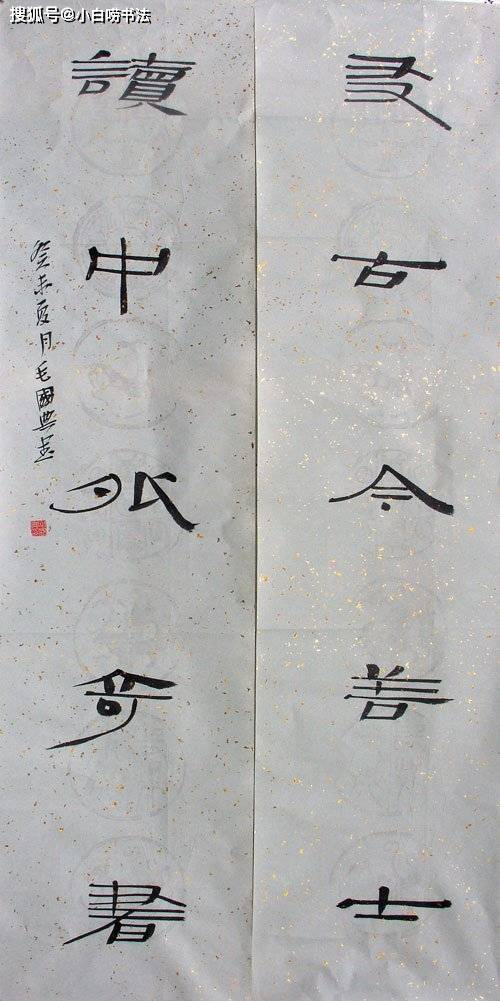 搜狐号@小白唠书法
友古今善士
讀中外奇書
癸未夏月毛國典書